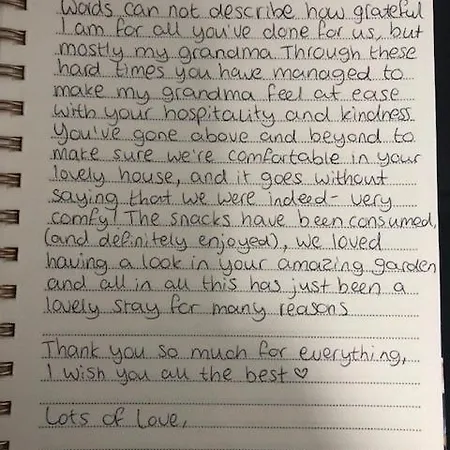 Words can not describe how grateful
I am for all you've done for us, but
mostly my grandma. Through these
hard times you have managed to
make my grandma feel at ease
with your hospitality and kindness.
You've gone above and beyond to
make sure we're comfortable in your
lovely house, and it goes without
saying that we were indeed - very
comfy! The snacks have been consumed,
(and definitely enjoyed), we loved
having a look in your amazing garden
and all in all this has just been a
lovely stay for many reasons
Thank you so much for everything,
I wish you all the best ♡
Lots of love,